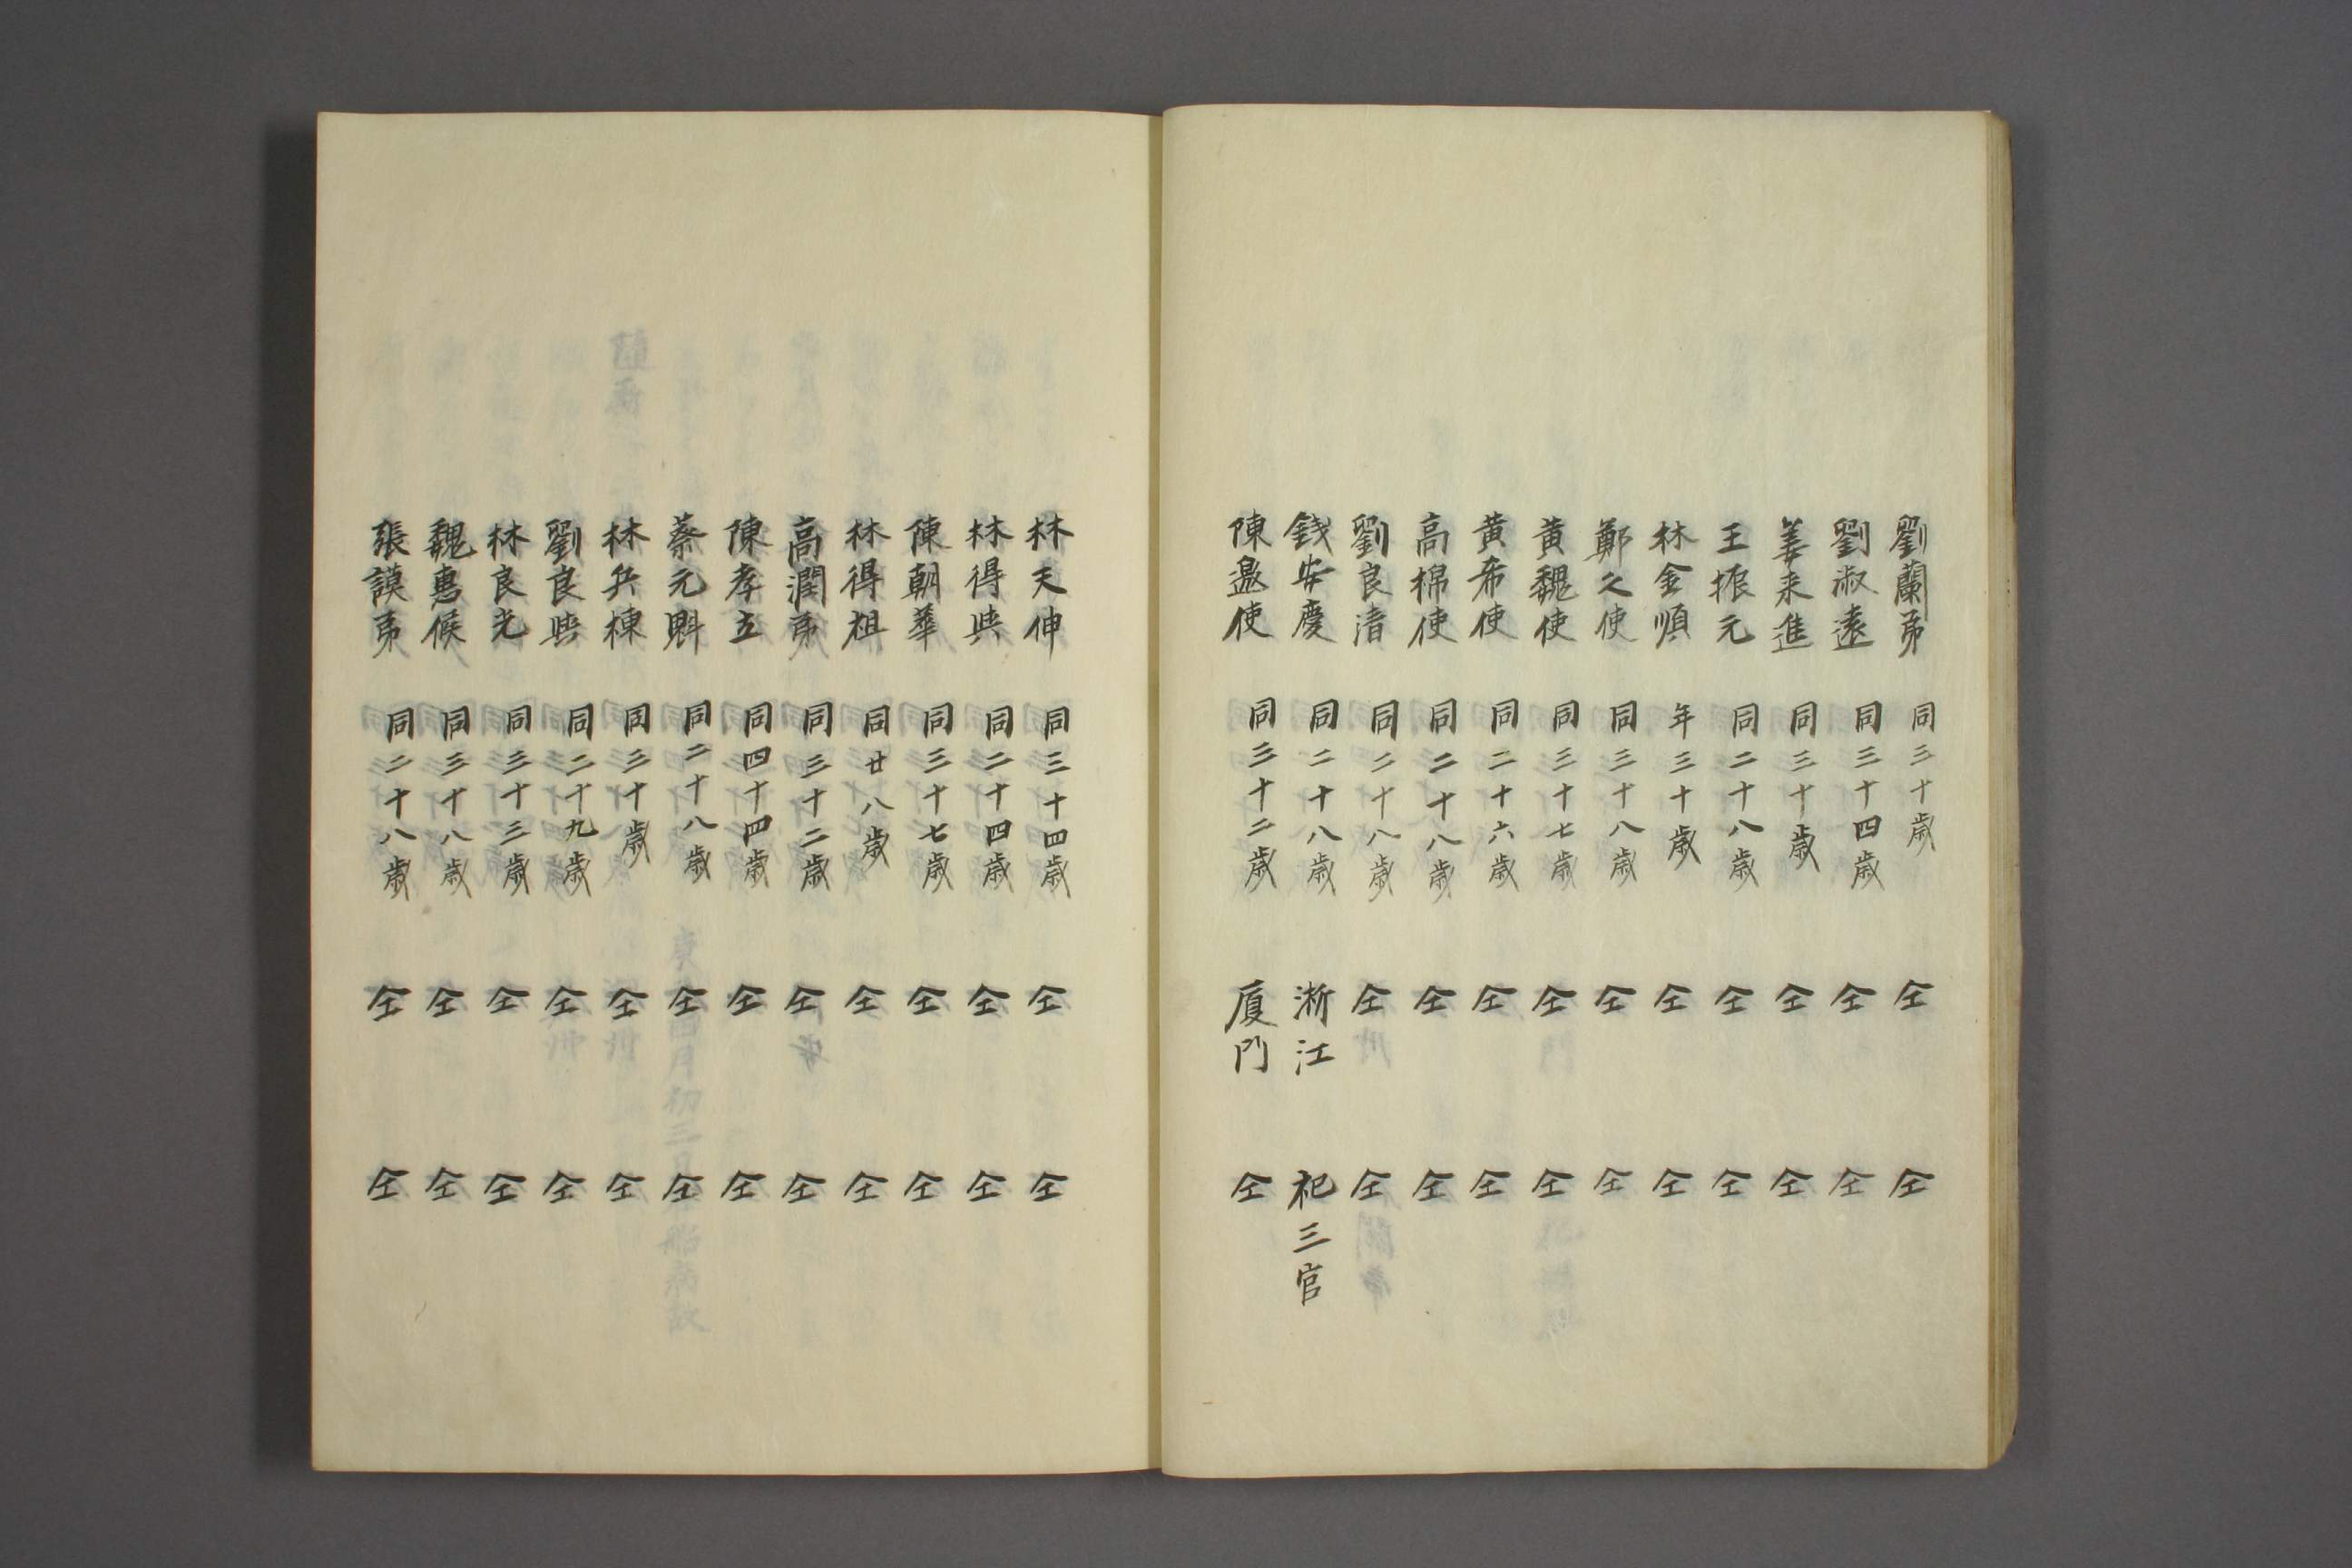 劉蘭弟 同三十歳 仝 仝
劉淑遠 同三十四歳 仝 仝
姜来進 同三十歳 仝 仝
王振元 同二十八歳 仝 仝
林金順 年三十歳 仝 仝
鄭久使 同三十八歳 仝 仝
黄魏使 同三十七歳 仝 仝
黄希使 同二十六歳 仝 仝
高棉使 同二十八歳 仝 仝
劉良 同二十八歳 仝 仝
錢安慶 同二十八歳 淅江 祀三官
陳邀使 同三十二歳 厦門 仝
林天伸 同三十四歳 仝 仝
林得興 同二十四歳 仝 仝
陳朝華 同三十七歳 仝 仝
林得祖 同廿八歳 仝 仝
高潤弟 同三十二歳 仝 仝
陳孝立 同四十四歳 仝 仝
蔡元魁 同二十八歳 仝 仝
林兵棟 同三十歳 仝 仝
劉良興 同二十九歳 仝 仝
林良光 同三十三歳 仝 仝
魏惠候 同三十八歳 仝 仝
張謨弟 同二十八歳 仝 仝